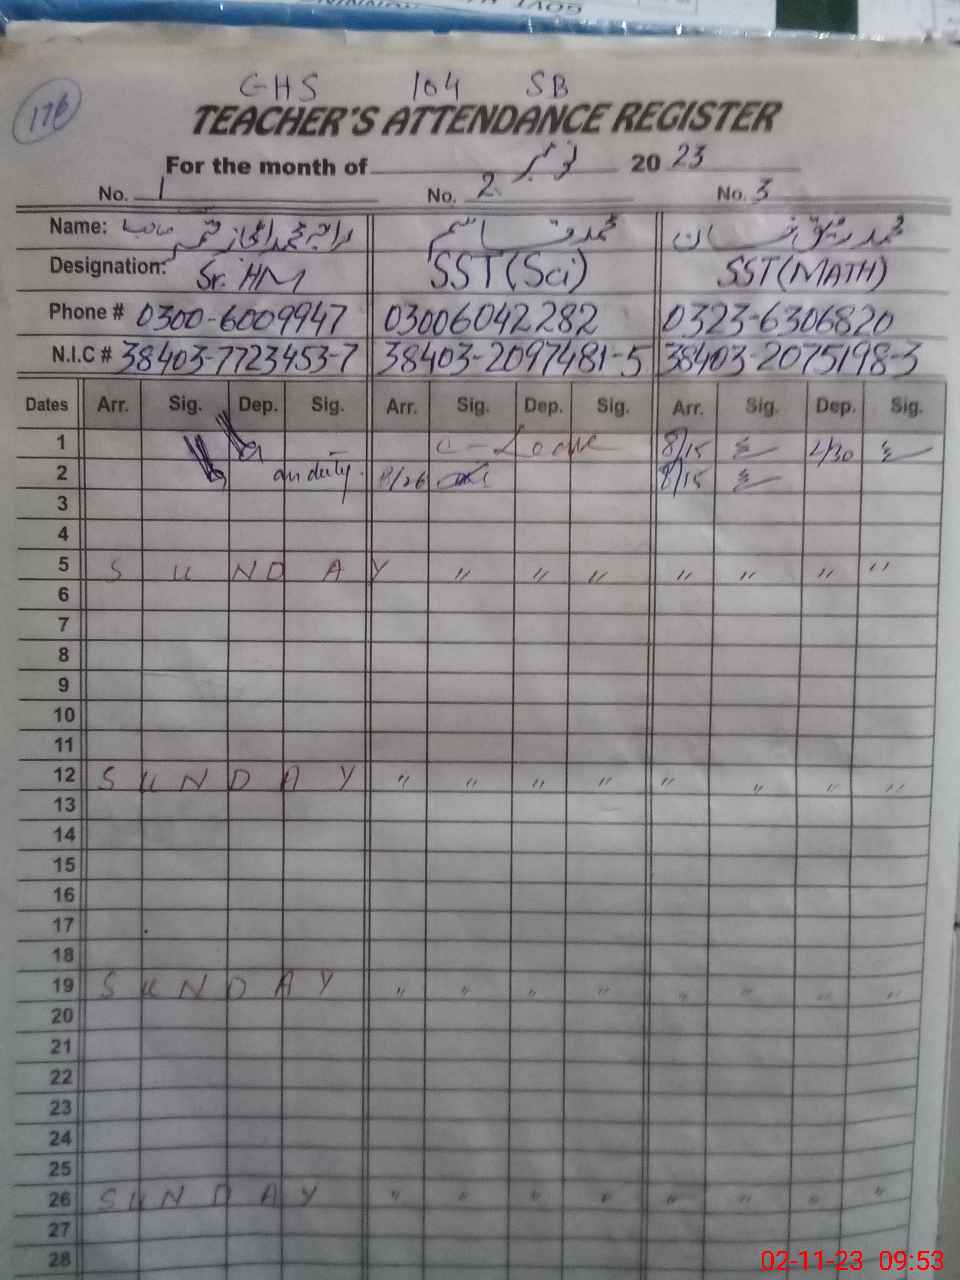 GHS 104 SB
176
TEACHER'S ATTENDANCE REGISTER
For the month of نومبر 20 23
No. 1 No. 2 No. 3
Name: محمد قاسم
Designation: Sr. HM SST(Sci) SST(MATH)
Phone # 0300-6009947 03006042282 0323-6306820
N.I.C # 38403-7723453-7 38403-2097481-5 38403-2075198-3
Dates Arr. Sig. Dep. Sig. Arr. Sig. Dep. Sig. Arr. Sig. Dep. Sig.
1 8/15
2 on duty. 8/26 8/15
3
4
5 SUNDAY " " " " " " "
6
7
8
9
10
11
12 SUNDAY " " " " " " " "
13
14
15
16
17
18
19 SUNDAY " " " " " " " "
20
21
22
23
24
25
26 SUNDAY " " " " " " " "
27
28
02-11-23 09:53